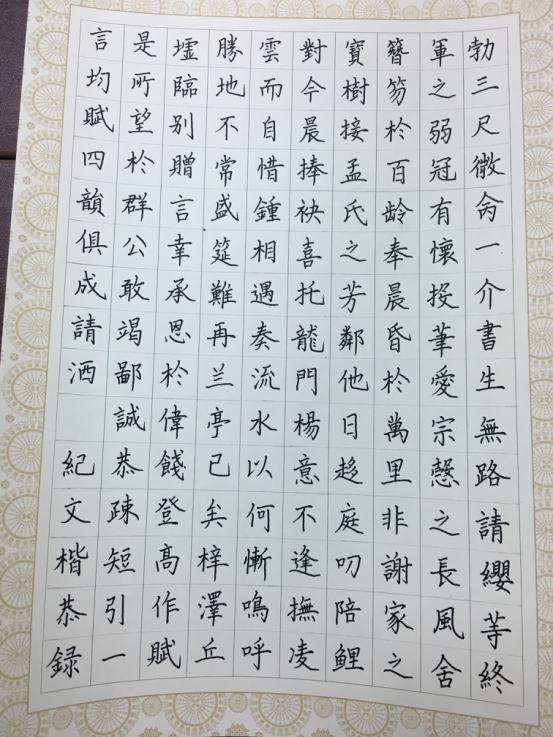 勃三尺微命一介書生無路請纓等終
軍之弱冠有懷投筆愛宗慤之長風舍
簪笏於百龄奉晨昏於萬里非謝家之
寶樹接孟氏之芳鄰他日趍庭叨陪鲤
對今晨捧袂喜托龍門楊意不逢撫凌
雲而自惜鍾相遇奏流水以何慚鳴呼
勝地不常盛筵難再兰亭已矣梓澤丘
墟臨别贈言幸承恩於偉餞登高作賦
是所望於群公敢竭鄙誠恭疎短引一
言均賦四韻俱成請洒
紀文楷恭録